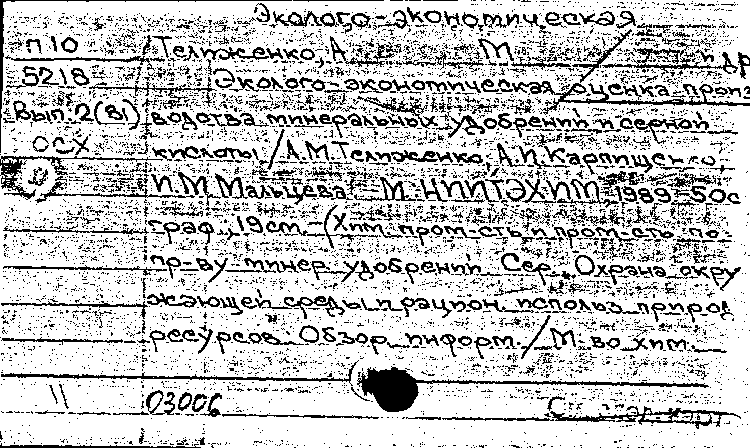 Эколого-экономическая
П 10 Телиженко, А М и др
5218 Эколого-экономическая оценка произ
Вып. 2(81) водства минеральных удобрений и серной
ОСХ кислоты / А.М. Телиженко, А.И. Карпищенко,
И.М. Мальцева. - М.: НИИТЭХИМ, 1989. - 50с
граф., 19см. - (Хим. пром-сть и пром-сть по
пр-ву минер удобрений Сер. „Охрана окру
жающей среды и рацион использ природ
ресурсов". Обзор. информ. / М-во хим.
11 03006